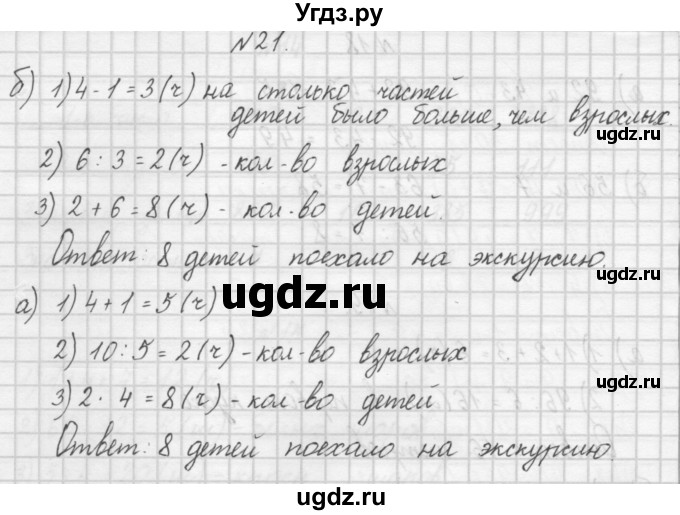 ugdz.ru
N21.
б) 1) 4 - 1 = 3 (ч) на столько частей
детей было больше, чем взрослых.
2) 6 : 3 = 2 (ч) - кол-во взрослых
3) 2 + 6 = 8 (ч) - кол-во детей.
Ответ: 8 детей поехало на экскурсию
ugdz.ru
а) 1) 4 + 1 = 5 (ч)
ugdz.ru
2) 10 : 5 = 2 (ч) - кол-во взрослых
3) 2 · 4 = 8 (ч) - кол-во детей
ugdz.ru
Ответ: 8 детей поехало на экскурсию
ugdz.ru